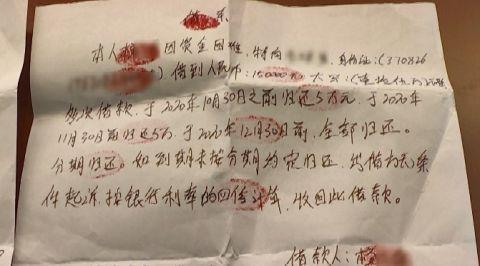 借条
本人 因资金困难,特向 身份证:(370826
)借到人民币:150000元 大写:(壹拾伍万元整
每次借款,于2020年10月30日之前归还5万元,于2020年
11月30日前归还5万,于2020年12月30日前,全部归还。
分期归还。如到期未按分期约定归还,
件起诉,按银行利率的四倍计算,收回此借款。
借款人: